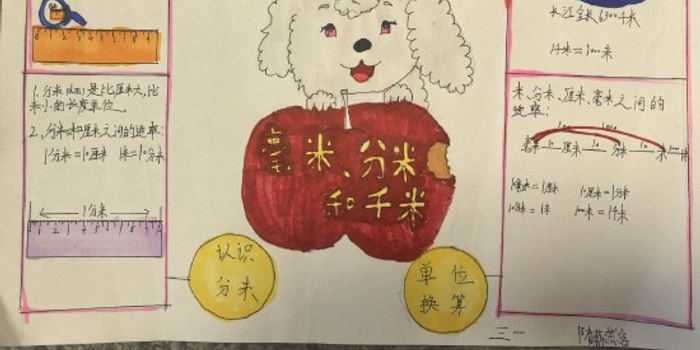 长江全长6300千米
1千米=1000米
1、分米(dm)是比厘米大,比
米小的长度单位。
2、分米和厘米之间的进率:
1分米=10厘米 1米=10分米
1分米
毫米、分米
和千米
认识
分米
单位
换算
米、分米、厘米、毫米之间的
进率:
毫米 10 厘米 10 分米 10 米
10厘米=1分米
10分米=1米
三一